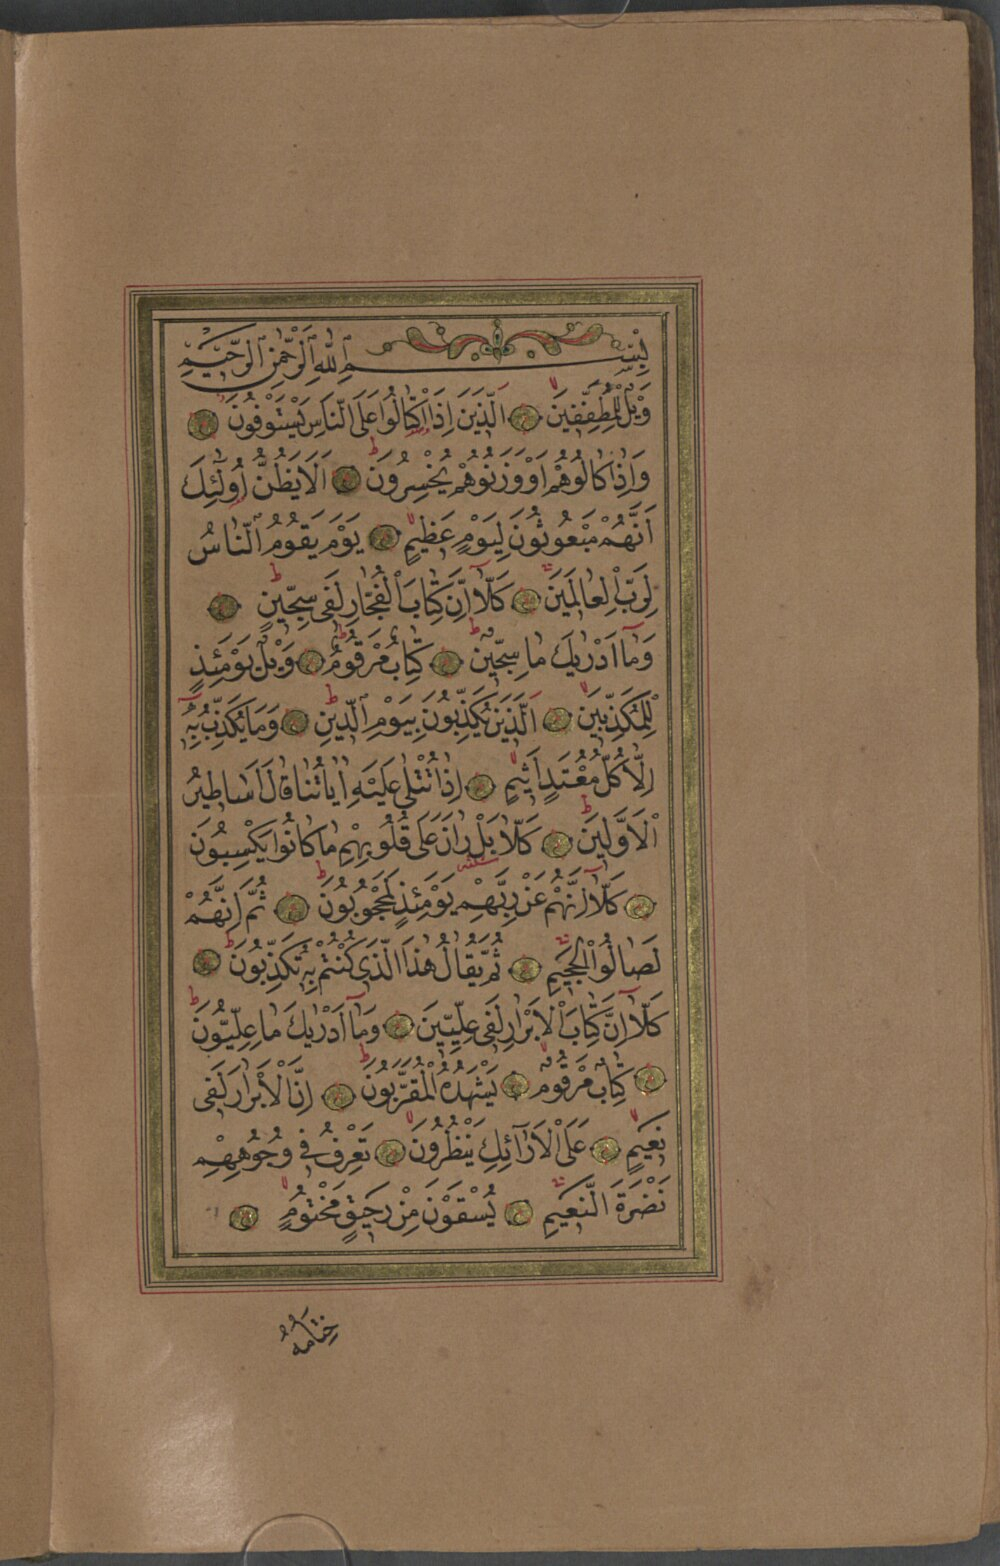 بِسْمِ اللهِ الرَّحْمٰنِ الرَّحِيمِ
وَيْلٌ لِلْمُطَفِّفِينَ ۝ اَلَّذِينَ اِذَا اكْتَالُوا عَلَى النَّاسِ يَسْتَوْفُونَ ۝
وَاِذَا كَالُوهُمْ اَوْ وَزَنُوهُمْ يُخْسِرُونَ ۝ اَلَا يَظُنُّ اُولٰٓئِكَ
اَنَّهُمْ مَبْعُوثُونَ لِيَوْمٍ عَظِيمٍ ۝ يَوْمَ يَقُومُ النَّاسُ
لِرَبِّ الْعَالَمِينَ ۝ كَلَّٓا اِنَّ كِتَابَ الْفُجَّارِ لَفِى سِجِّينٍ ۝
وَمَٓا اَدْرٰيكَ مَا سِجِّينٌ ۝ كِتَابٌ مَرْقُومٌ ۝ وَيْلٌ يَوْمَئِذٍ
لِلْمُكَذِّبِينَ ۝ اَلَّذِينَ يُكَذِّبُونَ بِيَوْمِ الدِّينِ ۝ وَمَا يُكَذِّبُ بِهِٓ
اِلَّا كُلُّ مُعْتَدٍ اَثِيمٍ ۝ اِذَا تُتْلٰى عَلَيْهِ اٰيَاتُنَا قَالَ اَسَاطِيرُ
الْاَوَّلِينَ ۝ كَلَّا بَلْ رَانَ عَلٰى قُلُوبِهِمْ مَا كَانُوا يَكْسِبُونَ
۝ كَلَّٓا اِنَّهُمْ عَنْ رَبِّهِمْ يَوْمَئِذٍ لَمَحْجُوبُونَ ۝ ثُمَّ اِنَّهُمْ
لَصَالُوا الْجَحِيمِ ۝ ثُمَّ يُقَالُ هٰذَا الَّذِى كُنْتُمْ بِهِ تُكَذِّبُونَ ۝
كَلَّٓا اِنَّ كِتَابَ الْاَبْرَارِ لَفِى عِلِّيِّينَ ۝ وَمَٓا اَدْرٰيكَ مَا عِلِّيُّونَ
۝ كِتَابٌ مَرْقُومٌ ۝ يَشْهَدُهُ الْمُقَرَّبُونَ ۝ اِنَّ الْاَبْرَارَ لَفِى
نَعِيمٍ ۝ عَلَى الْاَرَٓائِكِ يَنْظُرُونَ ۝ تَعْرِفُ فِى وُجُوهِهِمْ
نَضْرَةَ النَّعِيمِ ۝ يُسْقَوْنَ مِنْ رَحِيقٍ مَخْتُومٍ ۝
خِتَامُهُ